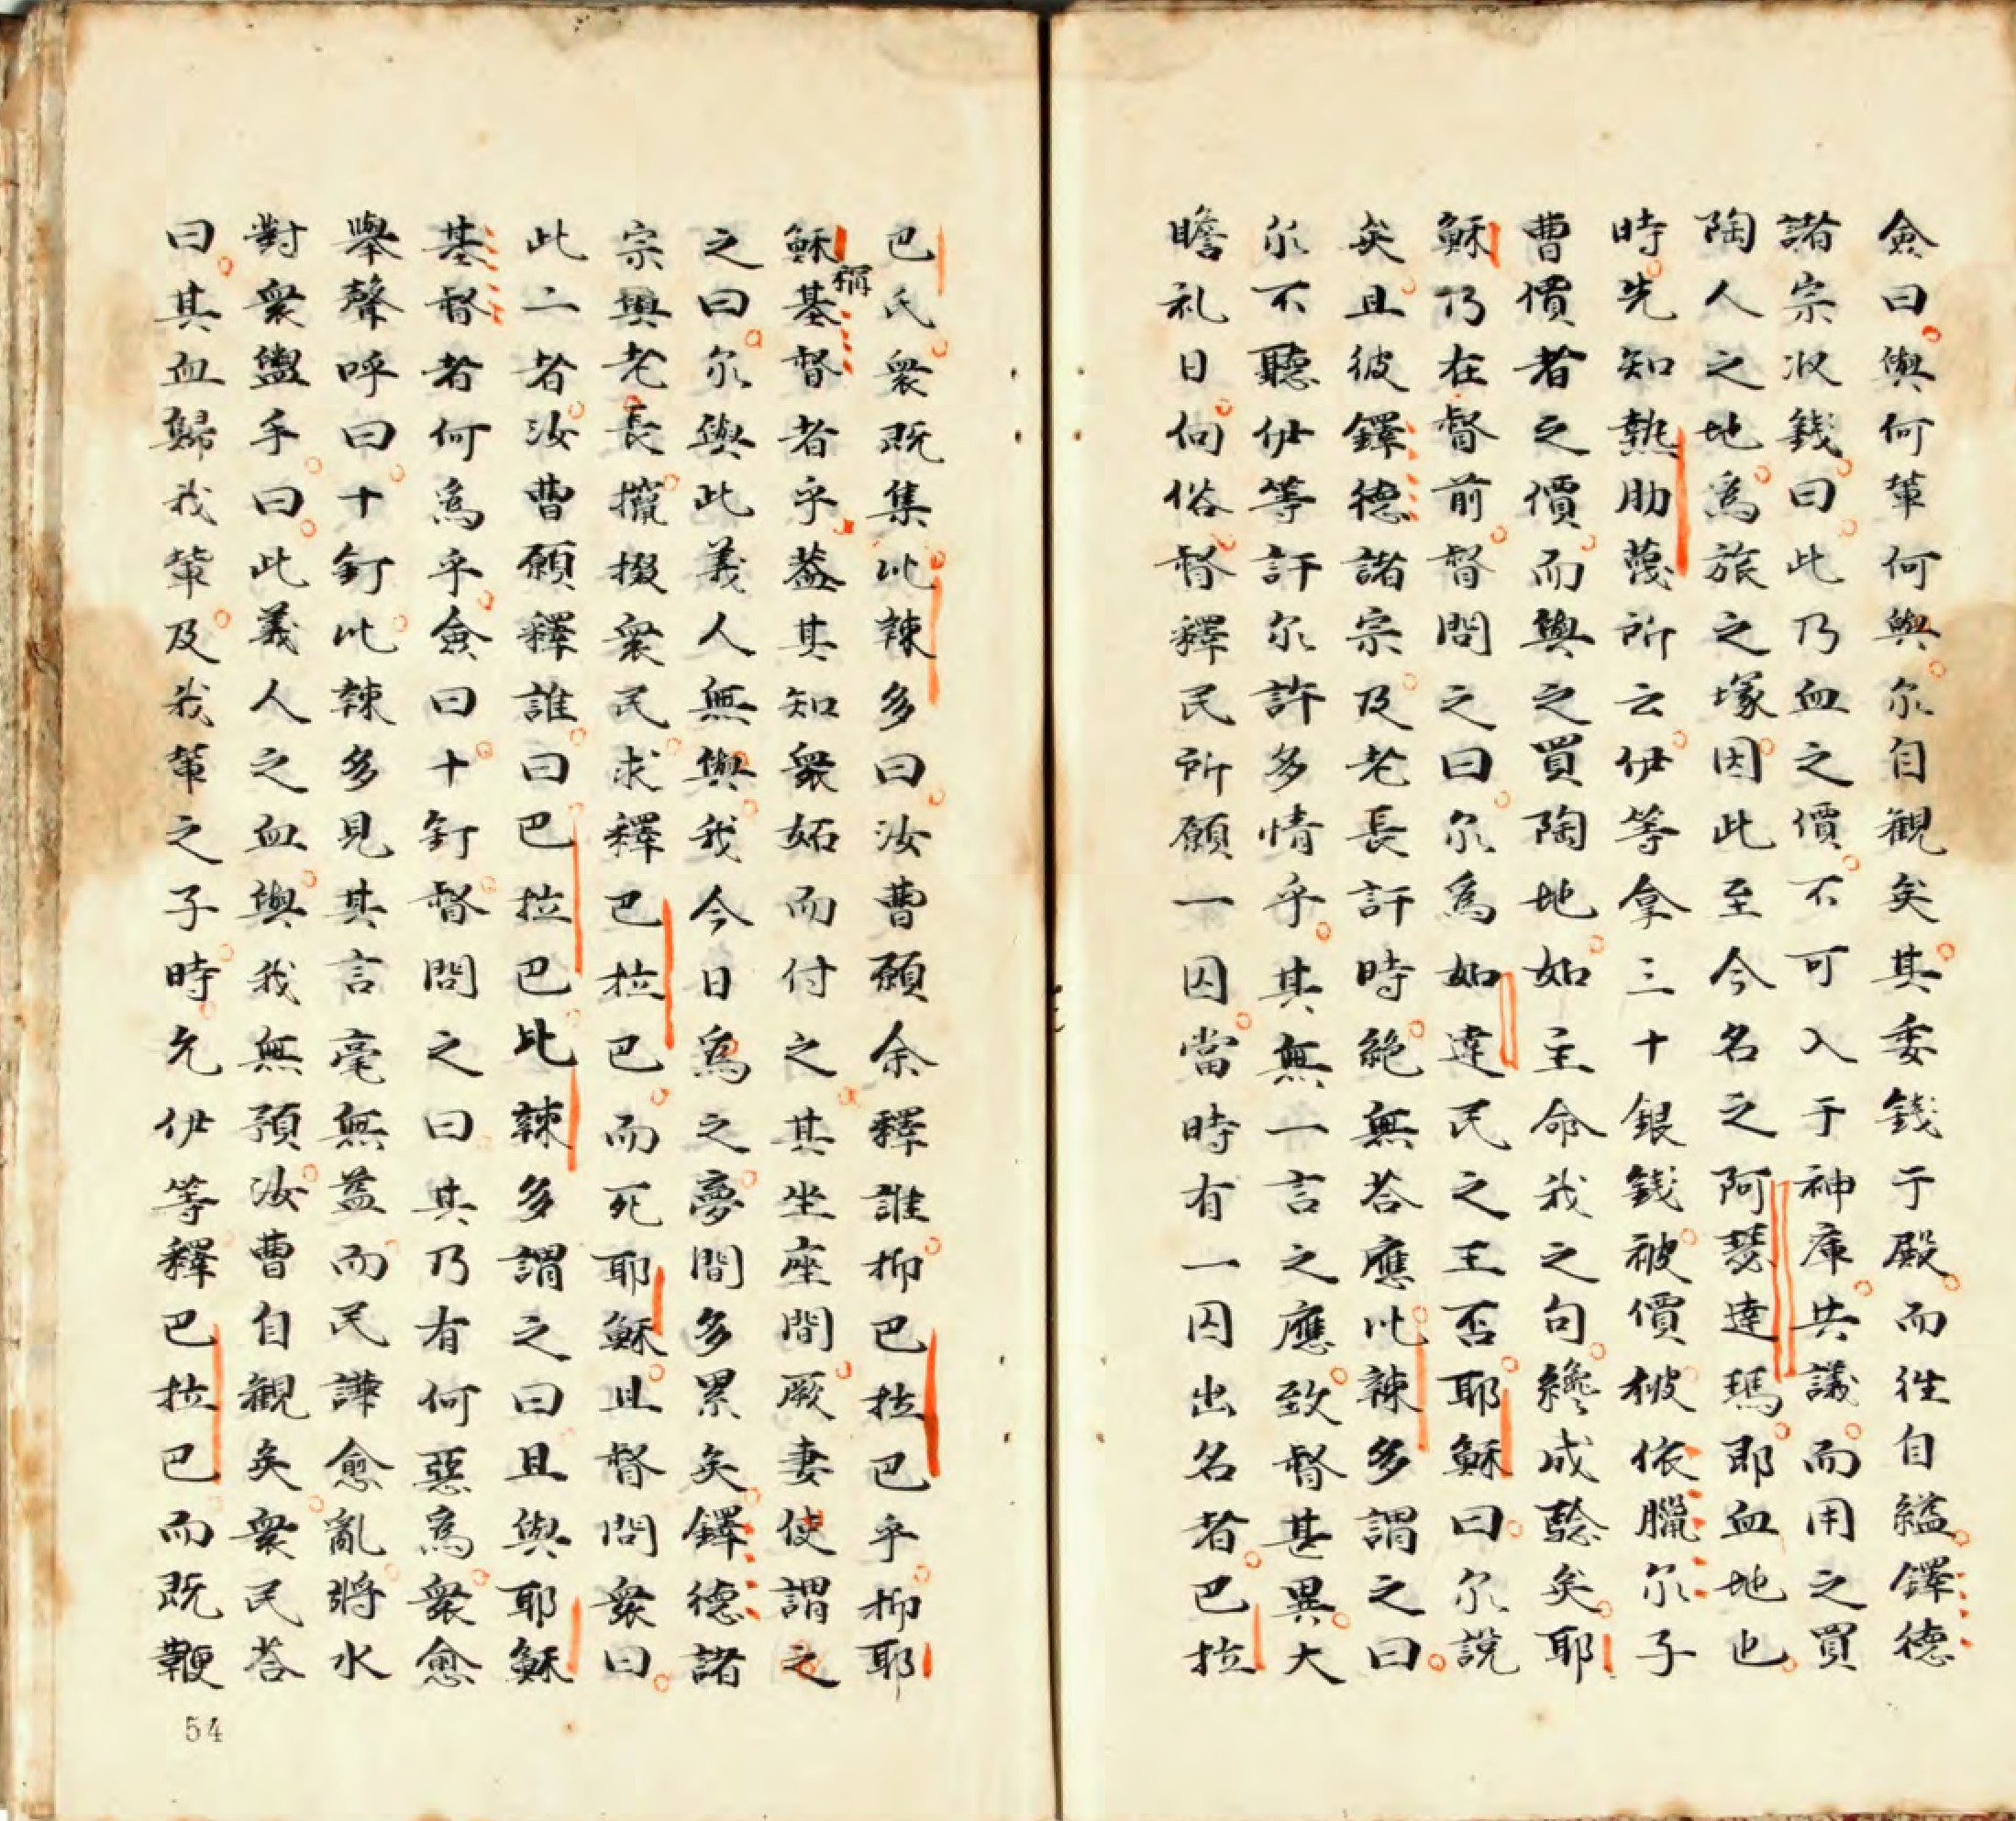 僉曰與何輩何與尔自觀矣其委錢于殿而徃自縊鐸德
諸宗収錢曰此乃血之價不可入于神庫共議而用之買
陶人之地為旅之塚因此至今名之阿瑟達瑪即血地也
時先知熱肋蔑所云伊等拿三十銀錢被價被依臘尔子
曹價者之價而與之買陶地如主命我之句纔成驗矣耶
穌乃在督前督問之曰尔為如達民之王否耶穌曰尔說
矣且彼鐸德諸宗及老長訐時絶無荅應比辣多謂之曰
尔不聽伊等訐尔許多情乎其無一言之應致督甚異大
瞻礼日向俗督釋民所願一囚當時有一囚出名者巴拉
巴氏衆既集比辣多曰汝曹願余釋誰抑巴拉巴乎抑耶
穌稱基督者乎葢其知衆妬而付之其坐座間厥妻使謂之
之曰尔與此義人無與我今日為之夢間多累矣鐸德諸
宗與老長攛掇衆民求釋巴拉巴而死耶穌且督問衆曰
此二者汝曹願釋誰曰巴拉巴比辣多謂之曰且與耶穌
基督者何為乎僉曰十釘督問之曰其乃有何惡為衆愈
舉聲呼曰十釘比辣多見其言毫無益而民譁愈亂將水
對衆盥手曰此義人之血與我無預汝曹自觀矣衆民荅
曰其血歸我輩及我輩之子時允伊等釋巴拉巴而既鞭
54